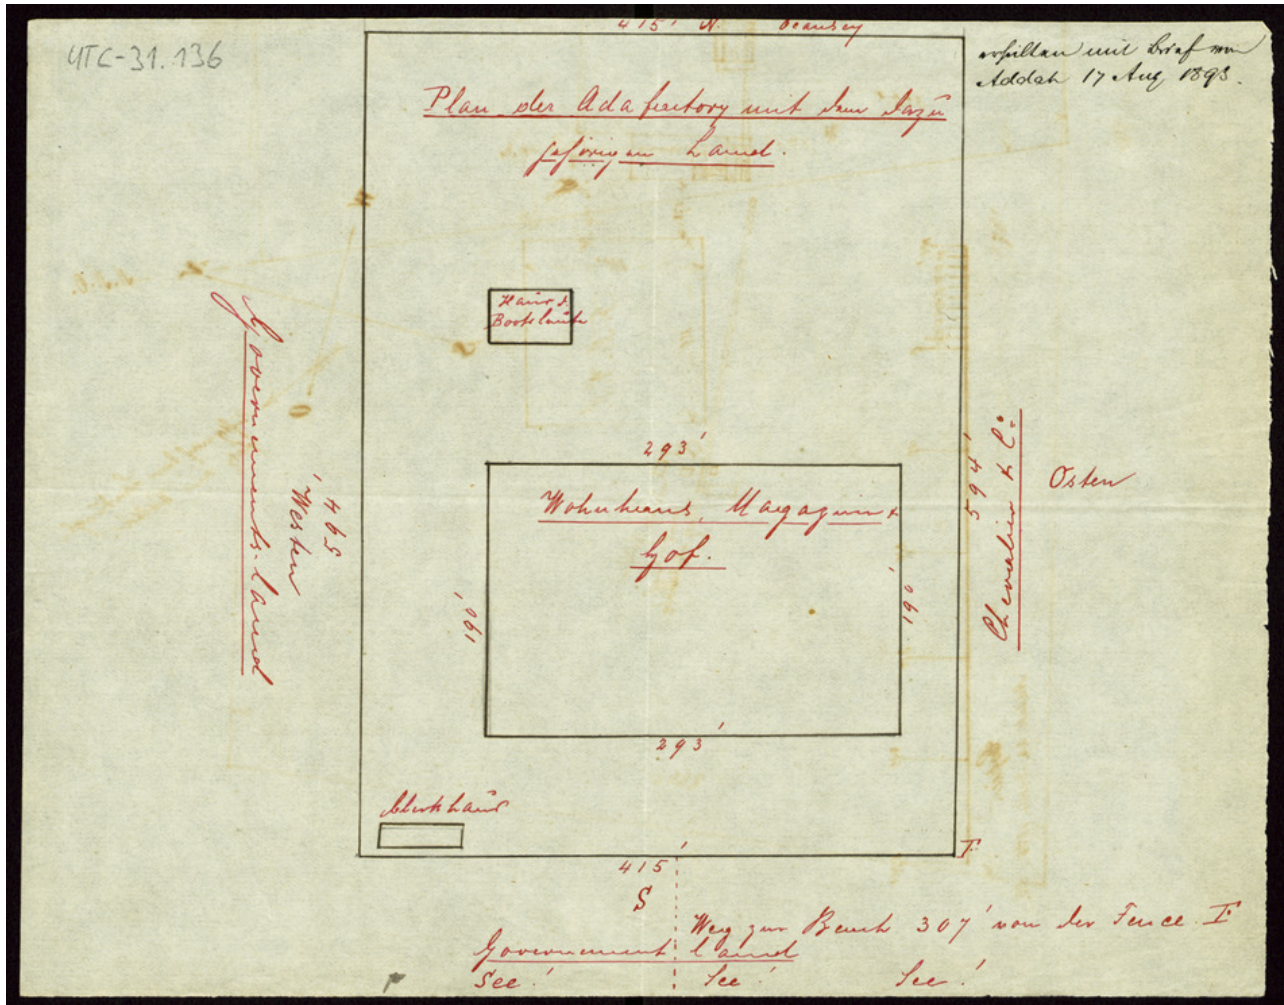 UTC-31.136
415' N.
erhalten mit Brief von
Addah 17 Aug 1893.
Plan der Ada factory mit dem dazu
gehörigen Land.
Haus d.
Bootsleute
Governments-land
Westen
594'
293'
Wohnhaus, Magazin &
Hof.
190'
190'
293'
594'
Chevalier & Co
Osten
Clerkhaus
415'
I
S
Weg zur Beach 307' von der Fence I
Government land
See! See! See!